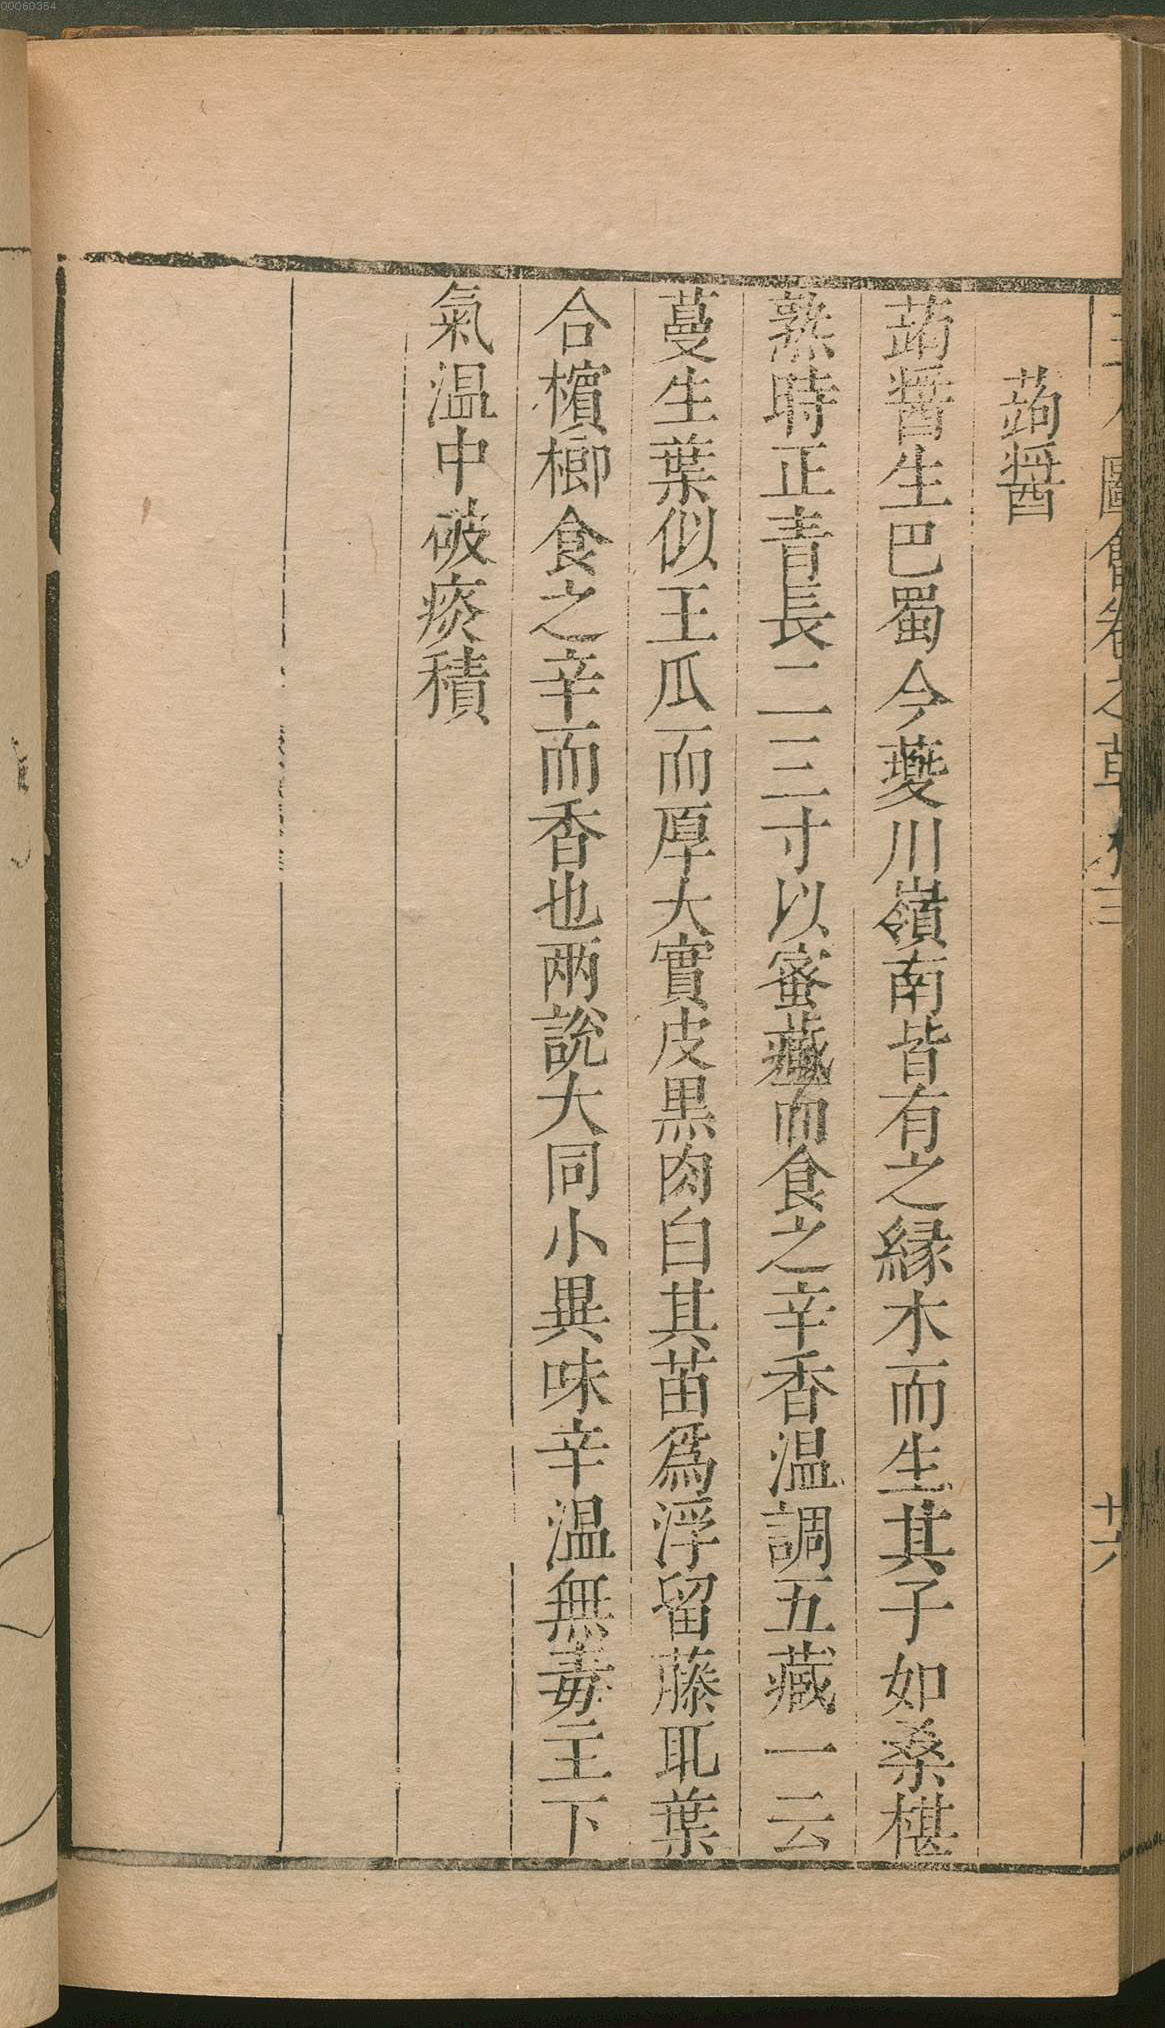 00060354
蒟醬
蒟醬生巴蜀今夔川嶺南皆有之縁木而生其子如桑椹
熟時正青長二三寸以蜜藏而食之辛香温調五藏一云
蔓生葉似王瓜而厚大實皮黒肉白其苗爲浮留藤取葉
合檳榔食之辛而香也两說大同小異味辛温無毒主下
氣温中破痰積
圖會卷之草木三
廿六